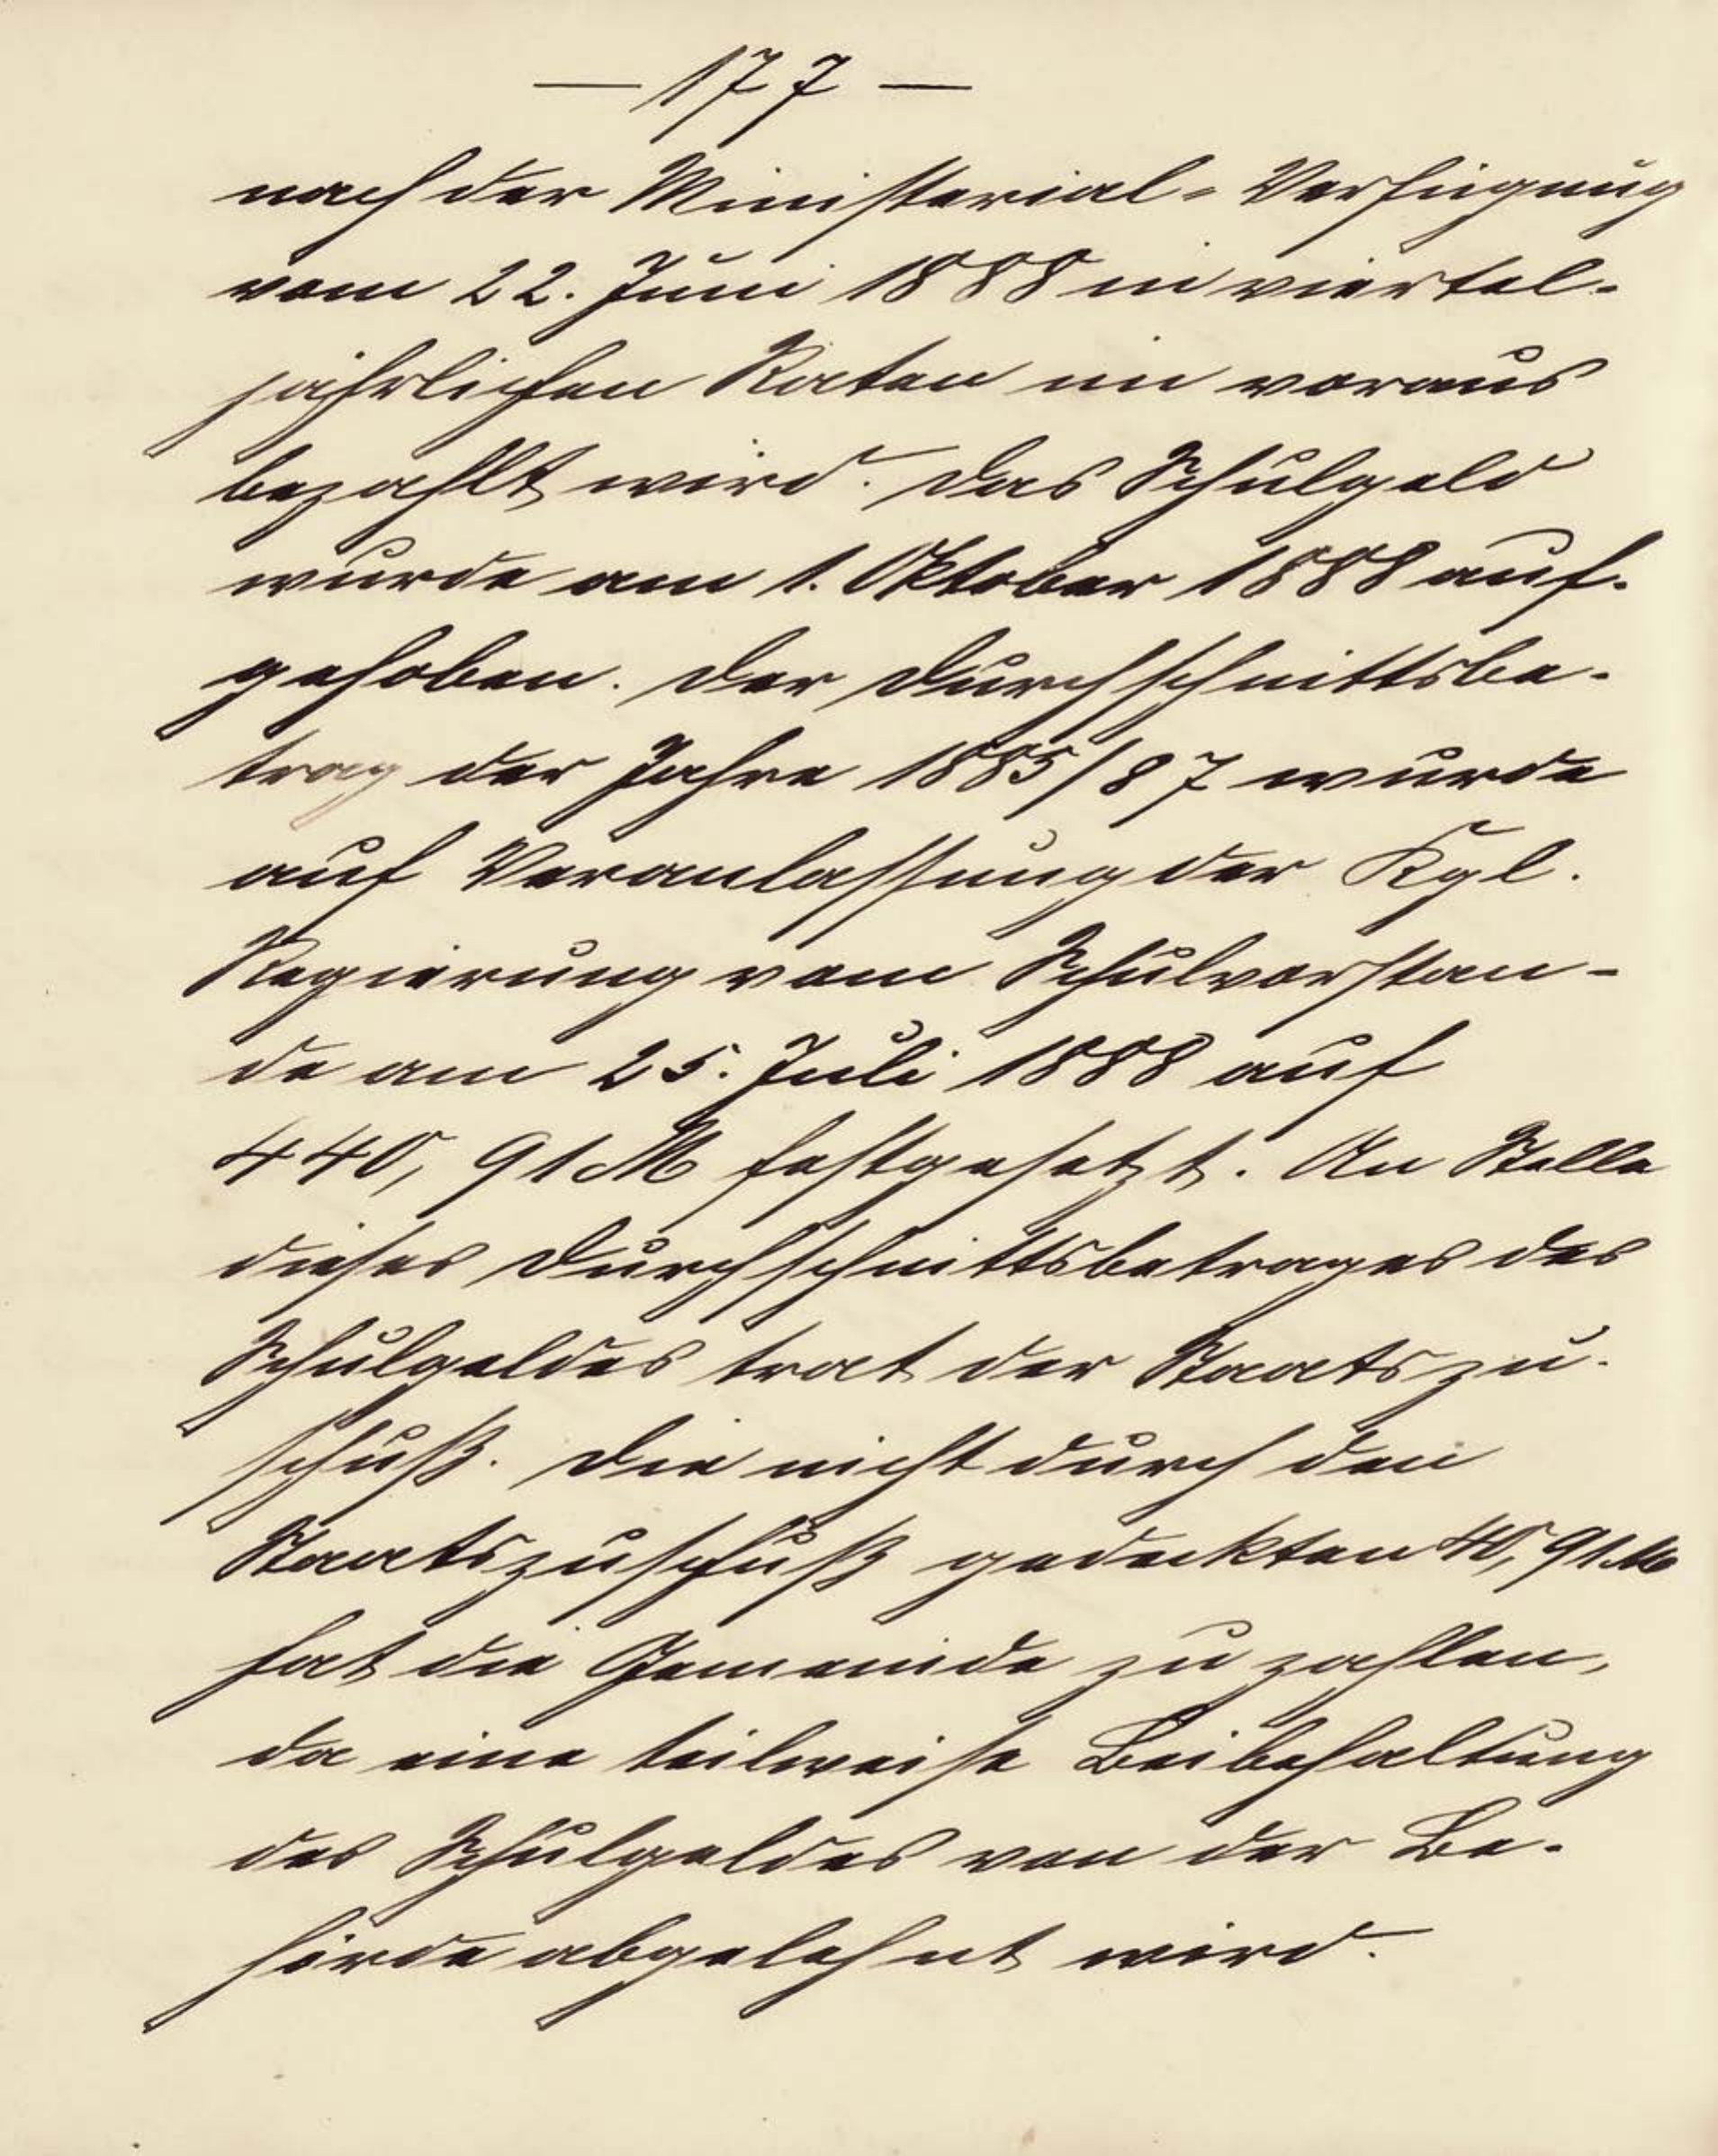 — 177 —
nach der Ministerial-Verfügung
vom 22. Juni 1888 in viertel-
jährlichen Raten im voraus
bezahlt wird. Das Schulgeld
wurde am 1. Oktober 1888 auf-
gehoben. Der Durchschnittsbe-
trag der Jahre 1885/87 wurde
auf Veranlassung der Kgl.
Regierung vom Schulvorstan-
de am 25. Juli 1888 auf
440,91 M festgesetzt. An Stelle
dieses Durchschnittsbetrages des
Schulgeldes trat der Staatszu-
schuß. Die nicht durch den
Staatszuschuß gedeckten 40,91 M
hat die Gemeinde zu zahlen,
da eine teilweise Beibehaltung
des Schulgeldes von der Be-
hörde abgelehnt wird.